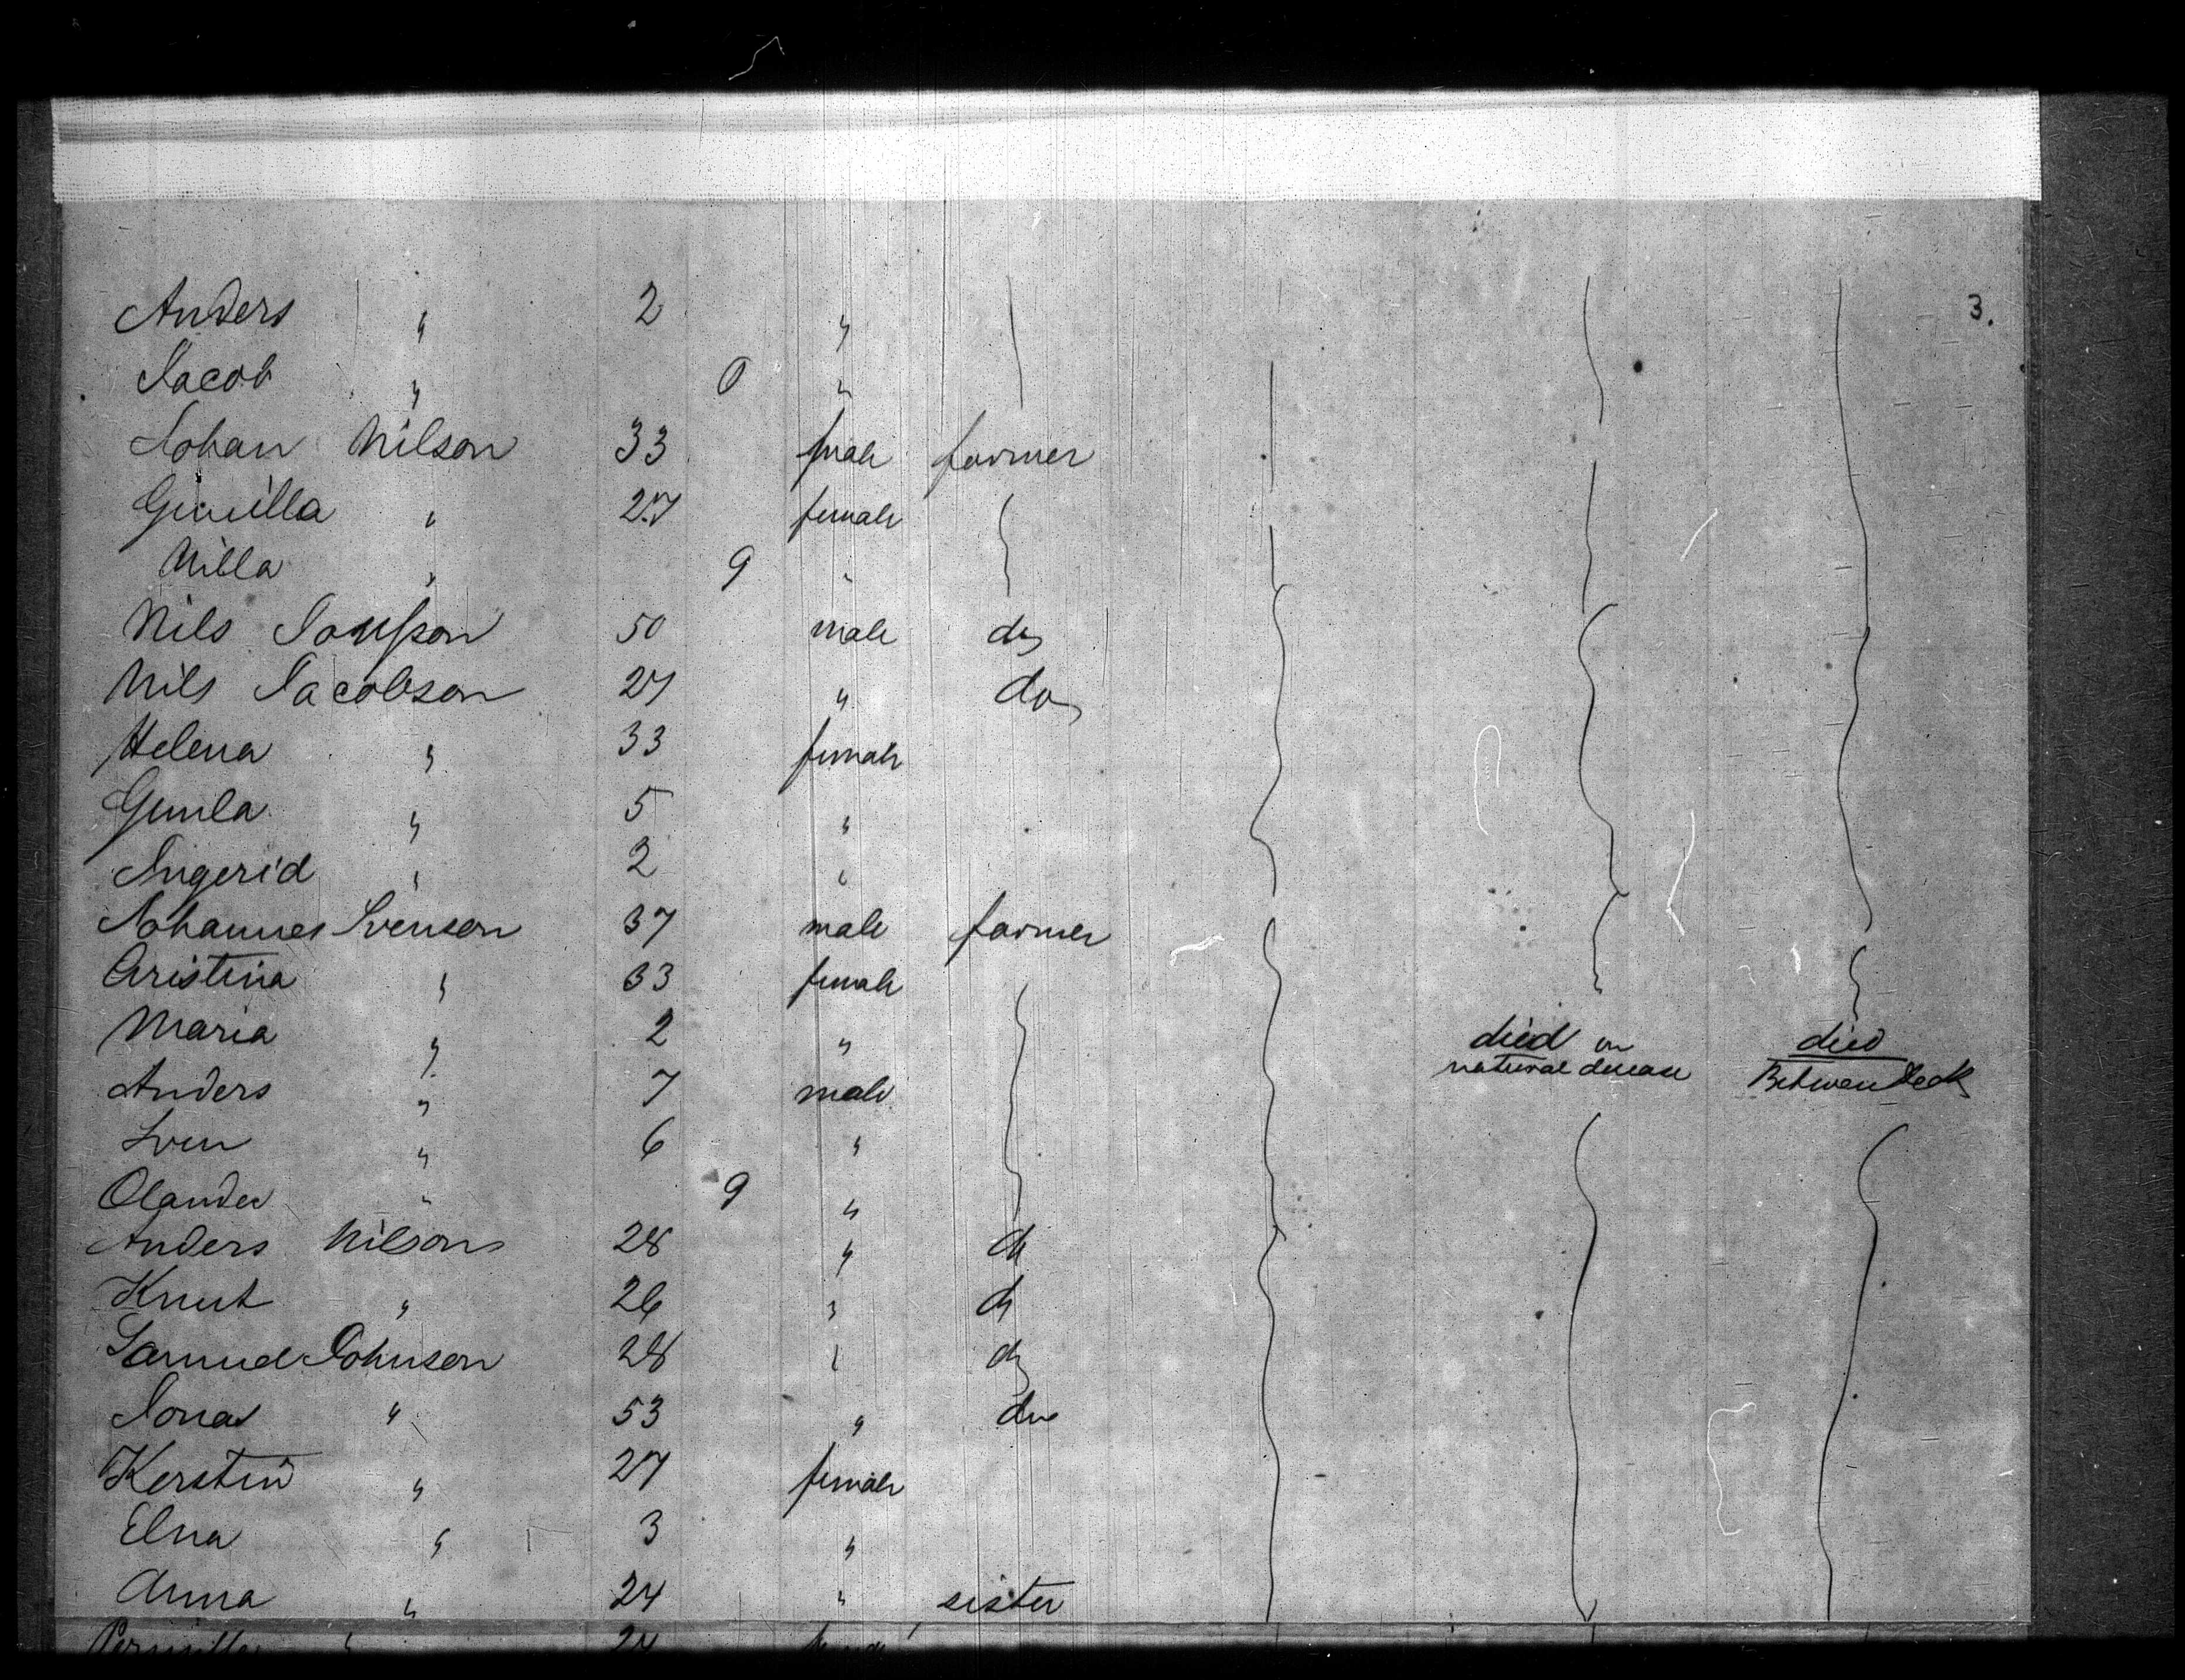 Anders " 2 " 3.
Jacob " 0 "
Johan Nilson 33 male farmer
Gunilla " 27 female
Nilla " 9 "
Nils 50 male do
Nils Jacobson 27 " do
Helena " 33 female
Gunla " 5 "
Ingerid " 2 "
Johannes Svenson 37 male farmer
Cristina " 33 female
Maria " 2 " died on natural disease died Between Deck
Anders " 7 male
Sven " 6 "
Olander " 9 "
Anders Nilson 28 " do
Knut " 26 " do
Samuel Johnson 28 " do
Jonas " 53 " do
Kerstin " 27 female
Elna " 3 "
Anna " 24 " sister
Pernilla " 24